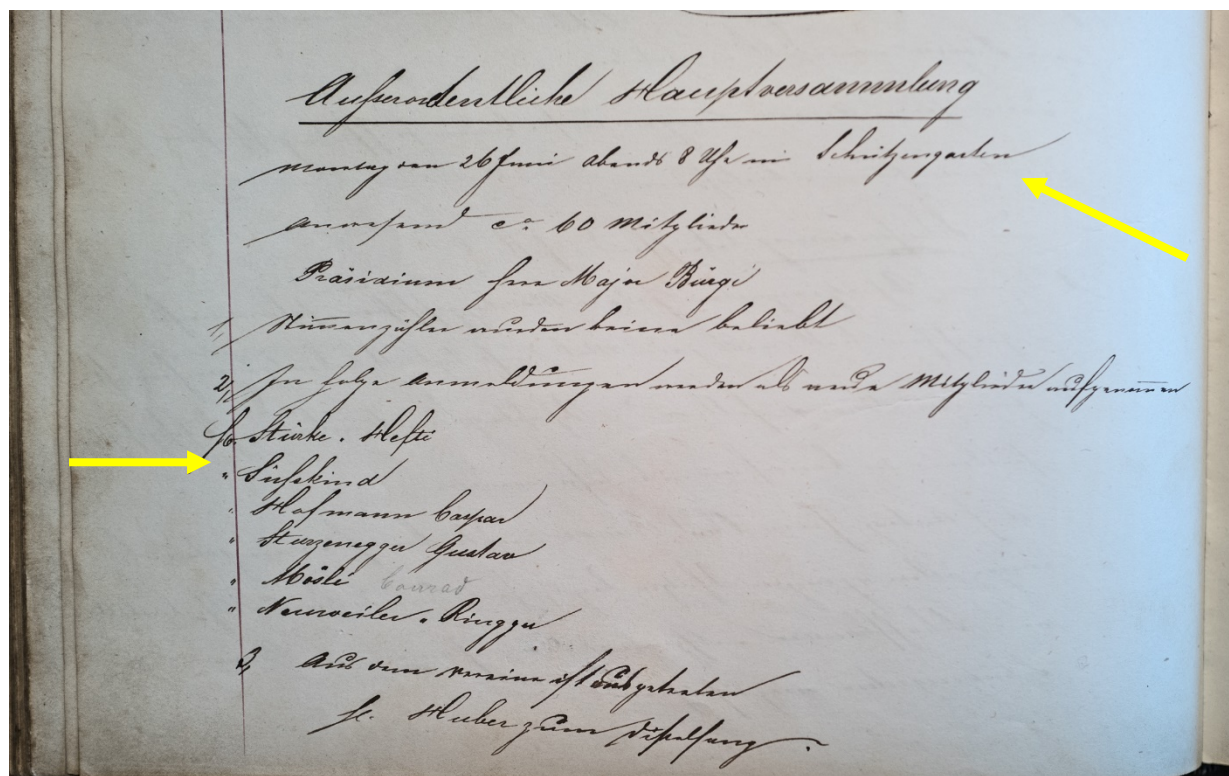 Außerordentliche Hauptversammlung
Montag den 26 Juni abends 8 Uhr im Schützengarten
Anwesend ca 60 Mitglieder
Präsidium Herr Major Bürgi
1, Stimmenzähler wurden keine beliebt
2, In Folge Anmeldungen werden als neue Mitglieder aufgenom̄en
H. Stürke-Hefti
" Süßkind
" Hofmann Caspar
" Sturzenegger Gustav
" Mösli Conrad
" Neuweiler-Ringger
3, Aus dem Vereine ist ausgetreten
H. Huber zum